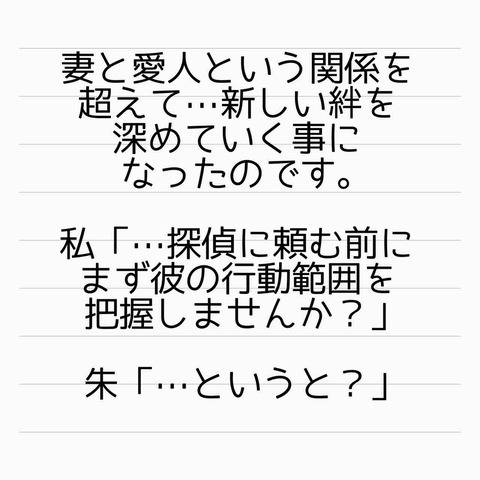 妻と愛人という関係を
超えて…新しい絆を
深めていく事に
なったのです。
私「…探偵に頼む前に
まず彼の行動範囲を
把握しませんか？」
朱「…というと？」